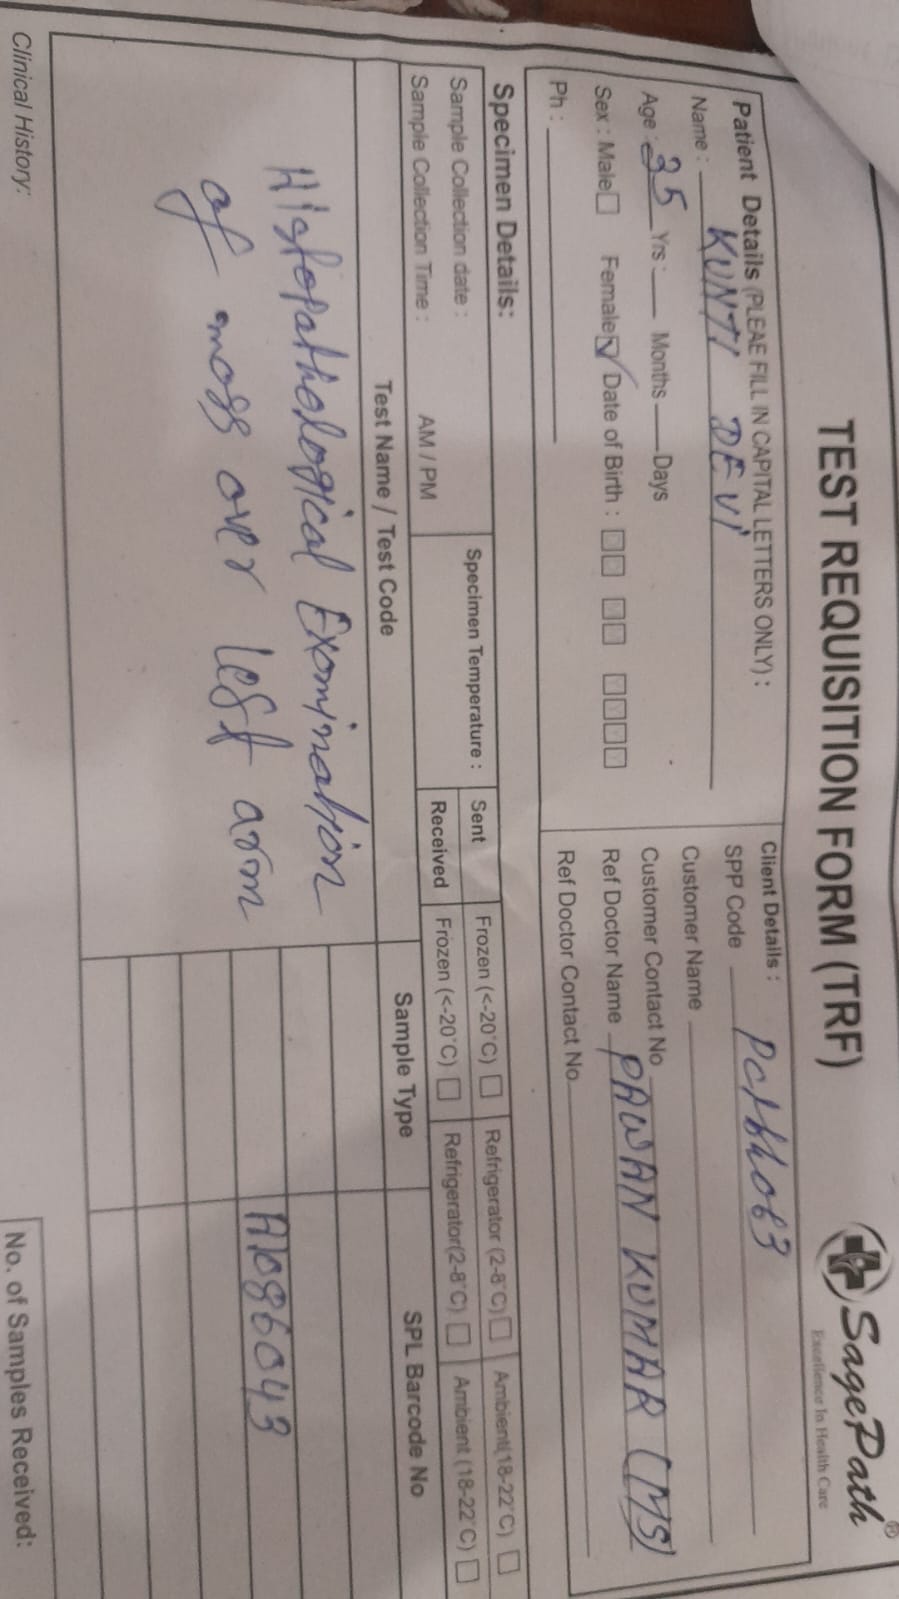 TEST REQUISITION FORM (TRF)
SagePath®
Excellence In Health Care
Patient Details (PLEAE FILL IN CAPITAL LETTERS ONLY) :
Name : KUNTI DEVI
Age : 35 Yrs : Months Days
Sex : Male Female Date of Birth :
Ph :
Client Details :
SPP Code
Customer Name
Customer Contact No
Ref Doctor Name PAWAN KUMAR (MS)
Ref Doctor Contact No
Specimen Details:
Sample Collection date :
Sample Collection Time : AM / PM
Specimen Temperature :
Sent Frozen (<-20°C) Refrigerator (2-8°C) Ambient(18-22°C)
Received Frozen (<-20°C) Refrigerator(2-8°C) Ambient (18-22°C)
Test Name / Test Code Sample Type SPL Barcode No
Histopathological Examination
of mass over left arm
A1086043
Clinical History:
No. of Samples Received: